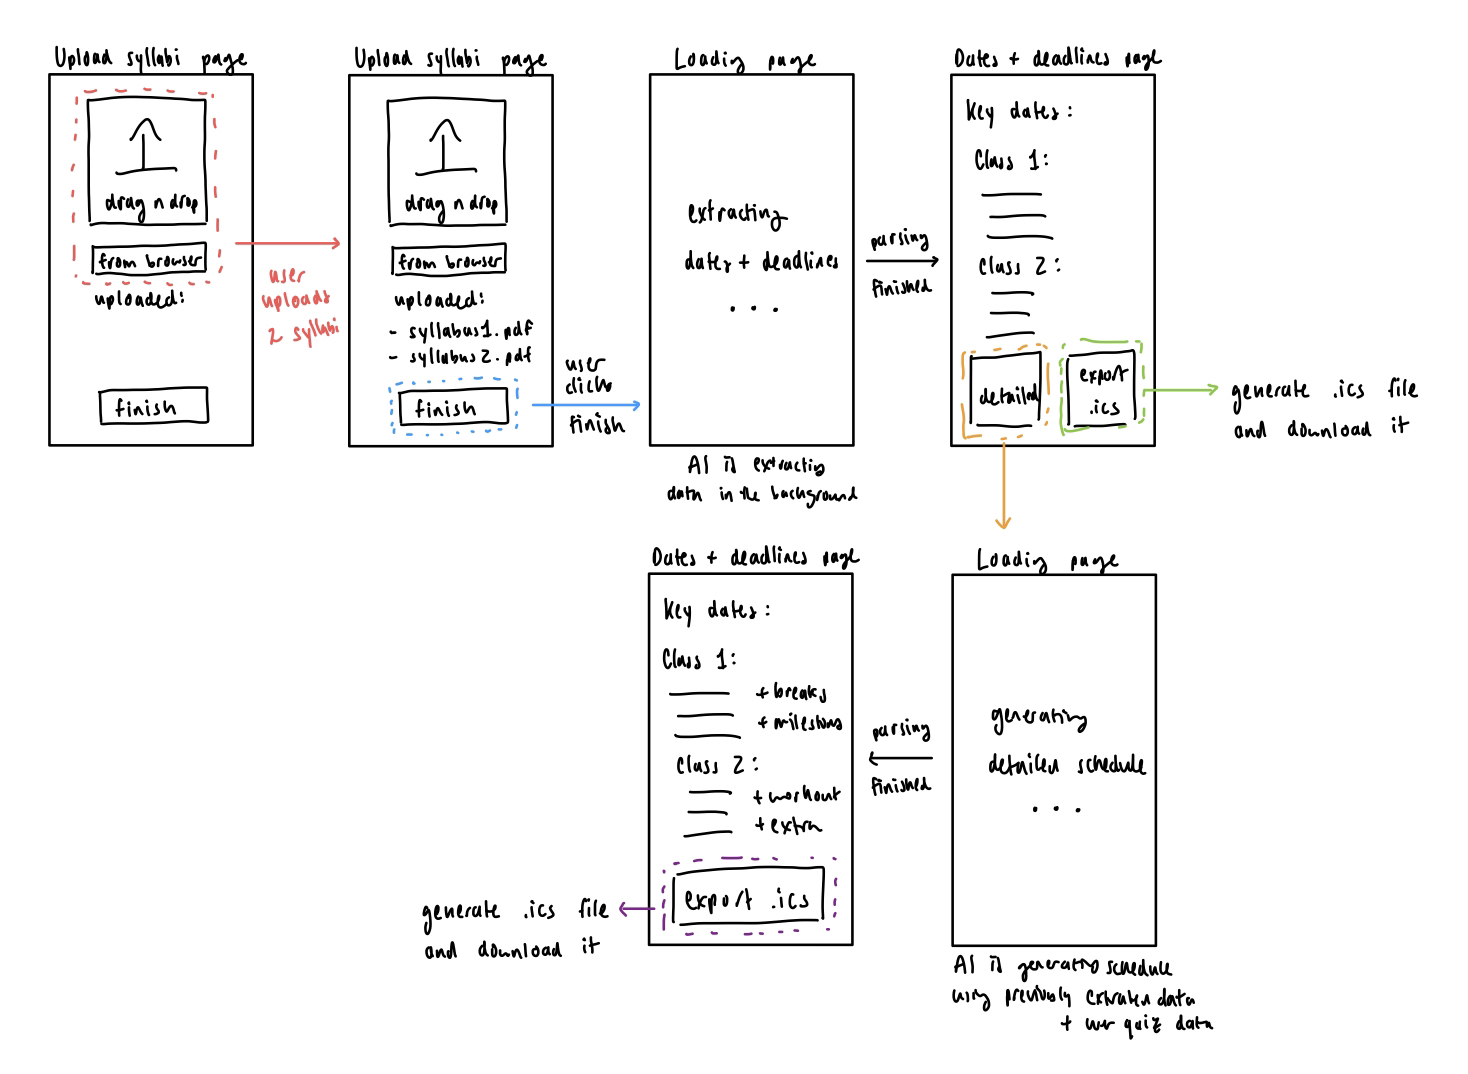 Upload syllabi page
drag n drop
from browser
uploaded:
finish
user
uploads
2 syllabi
Upload syllabi page
drag n drop
from browser
uploaded:
- syllabus1.pdf
- syllabus2.pdf
finish
user
clicks
finish
Loading page
extracting
dates + deadlines
...
AI is extracting
data in the background
parsing
finished
Dates + deadlines page
Key dates:
Class 1:
Class 2:
detailed
export
.ics
generate .ics file
and download it
Loading page
generating
detailed schedule
...
AI is generating schedule
using previously extracted data
+ user quiz data
parsing
finished
Dates + deadlines page
Key dates:
Class 1:
+ breaks
+ milestones
Class 2:
+ workout
+ extra
export .ics
generate .ics file
and download it